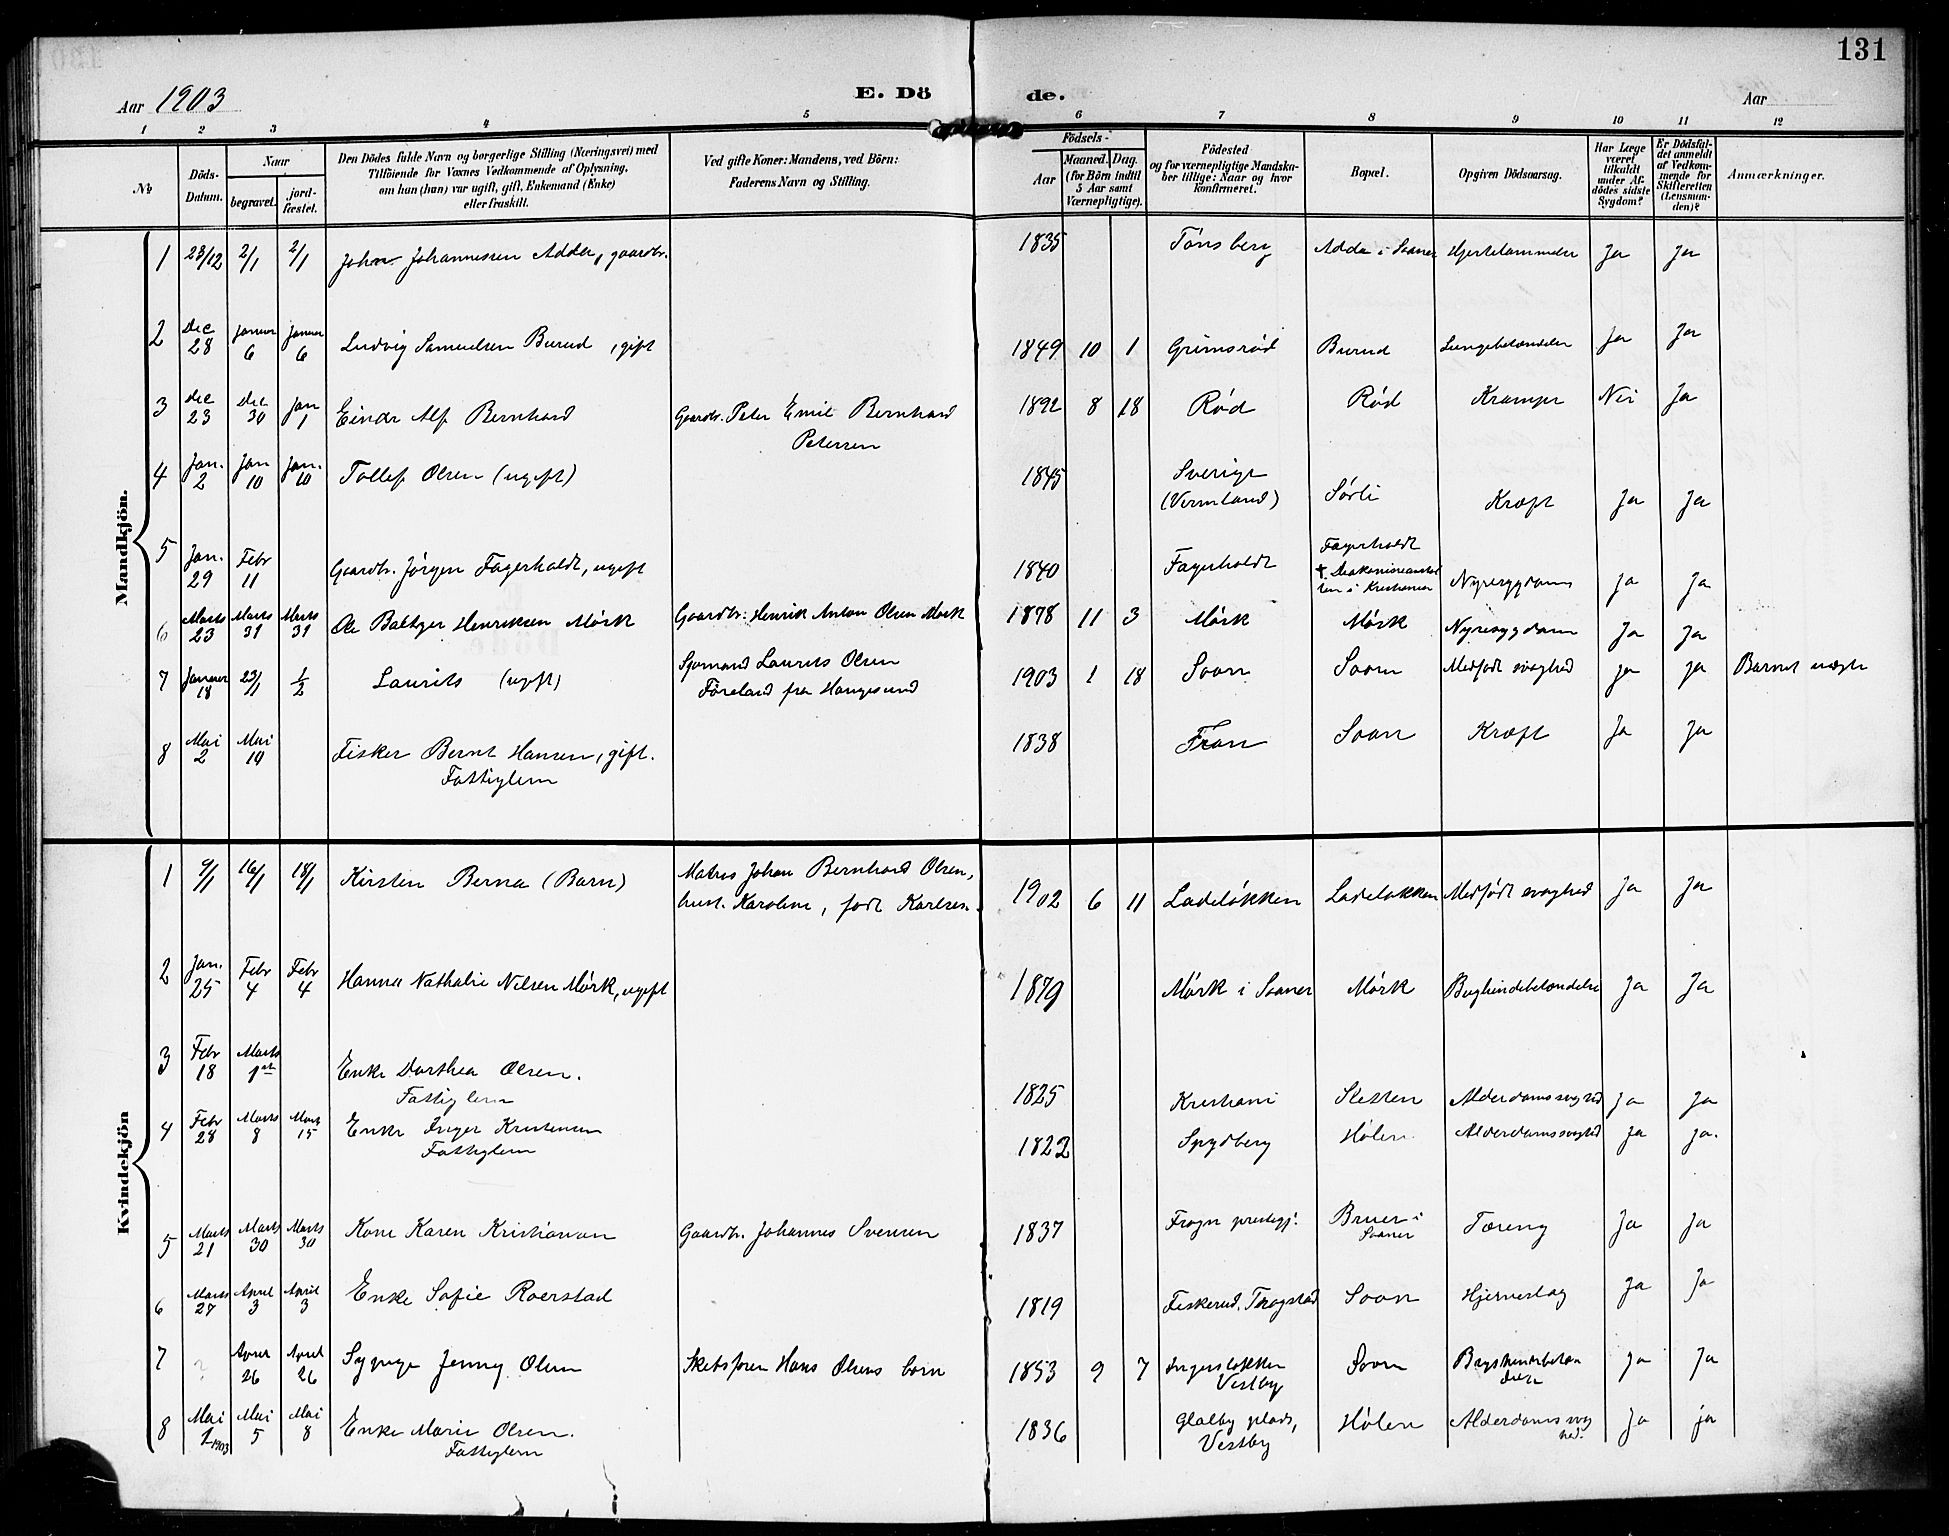 131
Aar 1903
E. Dö de.
Aar
1 2 3 4 5 6 7 8 9 10 11 12
No
Döds-Datum.
Naar
begravet.
jord-fæstet.
Den Dödes fulde Navn og borgerlige Stilling (Næringsvei) med
Tilföiende for Voxnes Vedkommende af Oplysning,
om han (hun) var ugift, gift, Enkemand (Enke)
eller fraskilt.
Ved gifte Koner: Mandens, ved Börn:
Faderens Navn og Stilling.
Födsels-
Aar
Maaned. Dag.
(for Börn indtil
5 Aar samt
Værnepligtige).
Födested
og for værnepligtige Mandska-
ber tillige: Naar og hvor
konfirmeret.
Bopæl.
Opgiven Dödsaarsag.
Har Læge
været
tilkaldt
under Af-
dödes sidste
Sygdom?
Er Dödsfal-
det anmeldt
af Vedkom-
mende for
Skifteretten
(Lensman-
den)?
Anmærkninger.
Mandkjön.
1 28/12 2/1 2/1 Johan Johannessen Adda, gaardbr. 1835 Tønsberg Adda i Saaner Hjertelammelse Ja Ja
2 Dec 28 Januar 6 Januar 6 Ludvig Samuelsen Burud, gift 1849 10 1 Grimsrød Burud Lungebetændelse Ja Ja
3 Dec 23 Dec 30 Jan 1 Einar Alf Bernhard Gaardbr. Peter Emil Bernhard
Petersen 1892 8 18 Rød Rød Krampe Nei Ja
4 Jan. 2 Jan 10 Jan. 10 Tollef Olsen (ugift) 1845 Sverige
(Vermland) Sørli Kræft Ja Ja
5 Jan. 29 Febr 11 Gaardbr. Jørgen Fagerholdt, ugift 1840 Fagerholdt Fagerholdt
† Diakonisseanstal
ten i Kristiania Nyresygdom Ja Ja
6 Marts 23 Marts 31 Marts 31 Ole Baltzer Henriksen Mørk Gaardbr. Henrik Anton Olsen Mørk 1878 11 3 Mørk Mørk Nyresygdom Ja Ja
7 Januar 18 23/1 1/2 Laurits (ugift) Sjømand Laurits Olsen
Føreland fra Haugesund 1903 1 18 Soon Soon Medfødt svaghed Ja Ja Barnet uægte
8 Mai 2 Mai 14 Fisker Bernt Hansen, gift.
Fattiglem 1838 Soon Kræft Ja Ja
Kvindekjön
1 9/1 16/1 18/1 Kirsten Berna (Barn) Matros Johan Bernhard Olsen,
hust. Karoline, født Karlsen. 1902 6 11 Ladeløkken Ladeløkken Medfødt svaghed Ja Ja
2 Jan. 25 Febr 4 Febr 4 Hanna Nathalie Nilsen Mørk, ugift 1879 Mørk i Saaner Mørk Bughindebetændelse Ja Ja
3 Febr 18 Marts 1ste Enke Dorthea Olsen.
Fattiglem 1825 Kristiania Sletten Alderdomssvaghed Ja Ja
4 Febr 28 Marts 8 Marts 15 Enke Inger Kristensen
Fattiglem 1822 Spydberg Hølen Alderdomssvaghed Ja Ja.
5 Marts 21 Marts 30 Marts 30 Kone Karen Kristiansen Gaardbr. Johannes Svensen 1837 Frogn prestegj. Bruer i
Saaner Tæring Ja Ja
6 Marts 27 April 3 April 3 Enke Sofie Roerstad 1819 Fiskerud, Trøgstad Soon Hjerneslag Ja Ja
7 ? April 26 April 26 Sypige Jenny Olsen Hans Olsens barn 1853 9 7 Ingersløkken
Vestby Soon Brysthindebetæn
delse Ja Ja
8 Mai 1 1903 Mai 5 Mai 8 Enke Marie Olsen.
Fattiglem 1836 Glalby plads,
Vestby Hølen Alderdomssvag
hed. Ja Ja